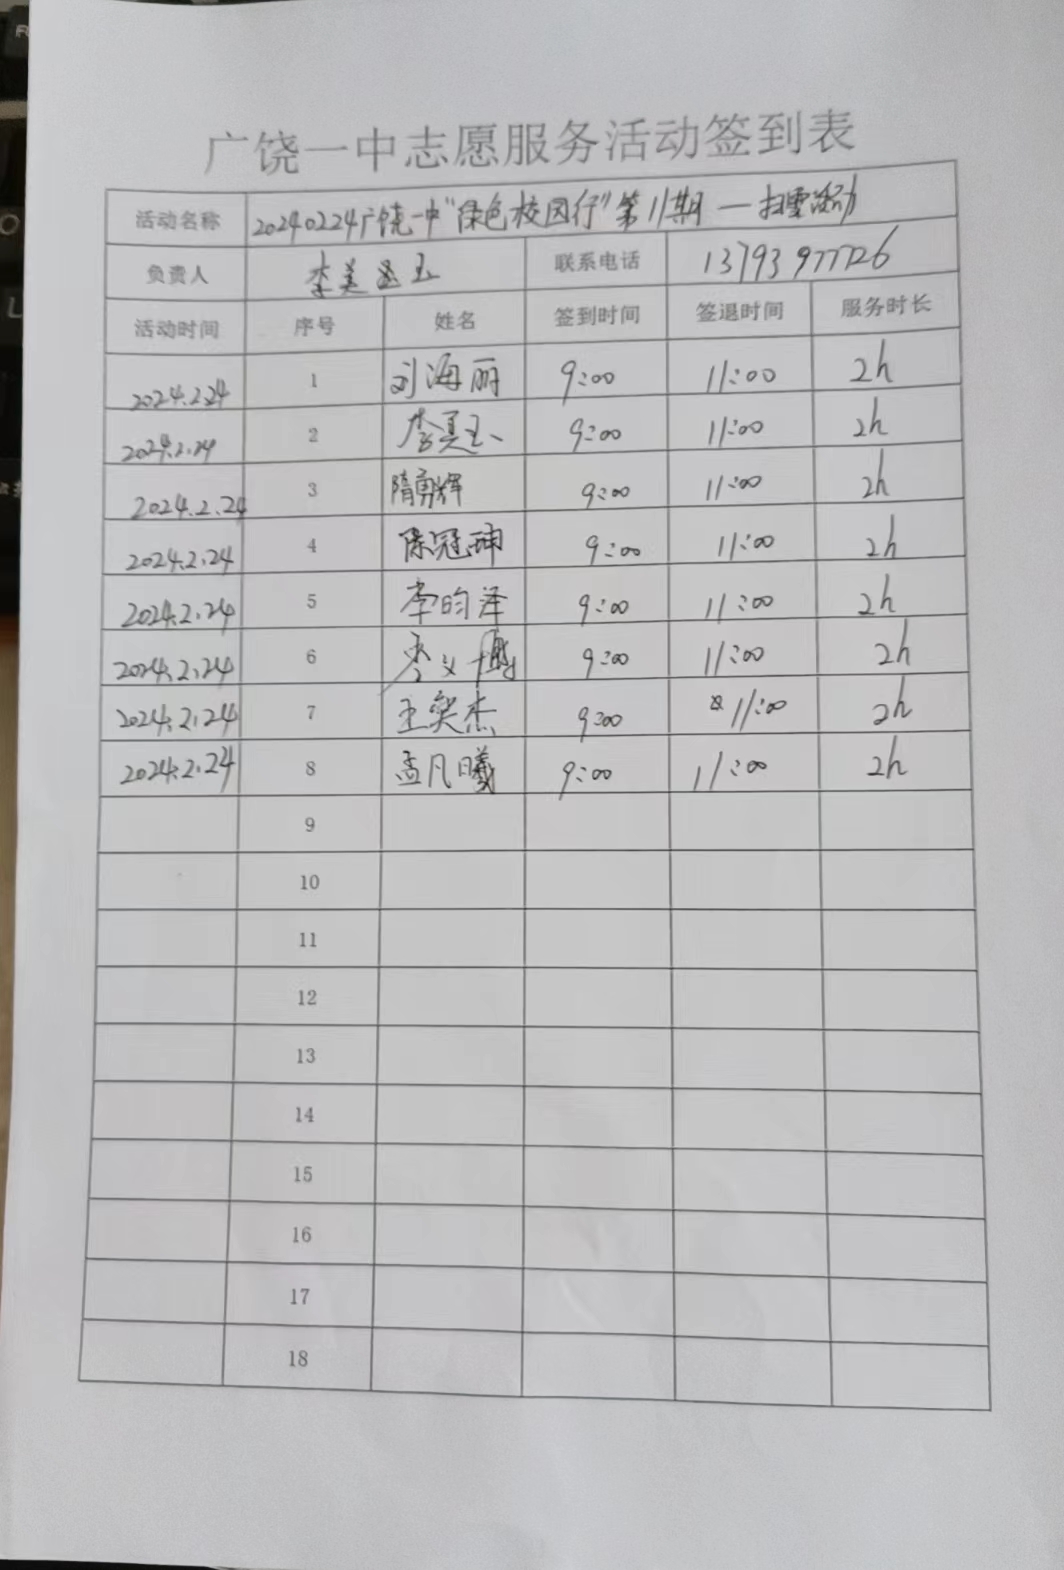 广饶一中志愿服务活动签到表
活动名称 20240224广饶一中"绿色校园行"第11期—扫雪活动
负责人 李美玉 联系电话
活动时间 序号 姓名 签到时间 签退时间 服务时长
2024.2.24 1 刘海丽 9:00 11:00 2h
2024.2.24 2 李美玉 9:00 11:00 2h
2024.2.24 3 隋勇辉 9:00 11:00 2h
2024.2.24 4 陈冠珅 9:00 11:00 2h
2024.2.24 5 李昀泽 9:00 11:00 2h
2024.2.24 6 李文博 9:00 11:00 2h
2024.2.24 7 王奕杰 9:00 11:00 2h
2024.2.24 8 孟凡曦 9:00 11:00 2h
9
10
11
12
13
14
15
16
17
18